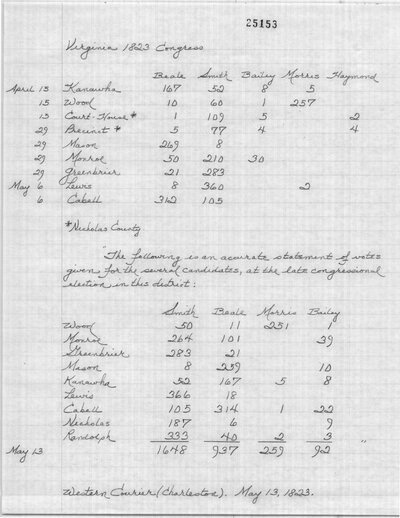 25153
Virginia 1823 Congress
Beale Smith Bailey Morris Haymond
April 15 Kanawha 167 52 8 5
15 Wood 10 60 1 257
15 Court-House* 1 109 5 2
29 Precinct * 5 77 4 4
29 Mason 269 8
29 Monroe 50 210 30
29 Greenbrier 21 283
May 6 Lewis 8 360 2
6 Cabell 312 105
*Nicholas County
"The following is an accurate statement of votes
given for the several candidates, at the late congressional
election in this district:
Smith Beale Morris Bailey
Wood 50 11 251 1
Monroe 264 101 39
Greenbrier 283 21
Mason 8 259 10
Kanawha 52 167 5 8
Lewis 366 18
Cabell 105 314 1 22
Nicholas 187 6 9
Randolph 333 40 2 3 "
May 13 1648 937 259 92
Western Courier (Charleston). May 13, 1823.